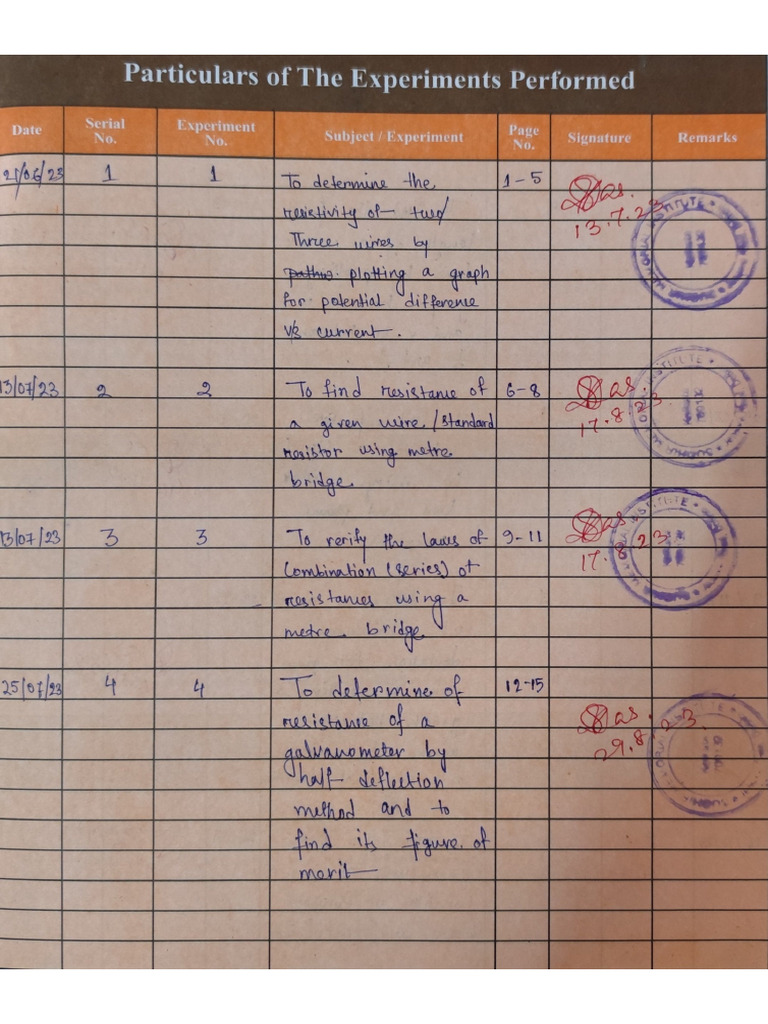 Particulars of The Experiments Performed
Date Serial No. Experiment No. Subject / Experiment Page No. Signature Remarks
21/06/23 1 1 To determine the 1-5 Das.
resistivity of two/ 13.7.23
Three wires by
plotting a graph
for potential difference
v/s current.
13/07/23 2 2 To find resistance of 6-8 Das
a given wire/standard 17.8.23
resistor using metre
bridge.
13/07/23 3 3 To verify the laws of 9-11 Das
Combination (series) of 17.8.23
resistances using a
metre bridge
25/07/23 4 4 To determine of 12-15
resistance of a Das.
galvanometer by 29.8.23
half deflection
method and to
find its figure of
merit
INSTITUTE
INSTITUTE
INSTITUTE